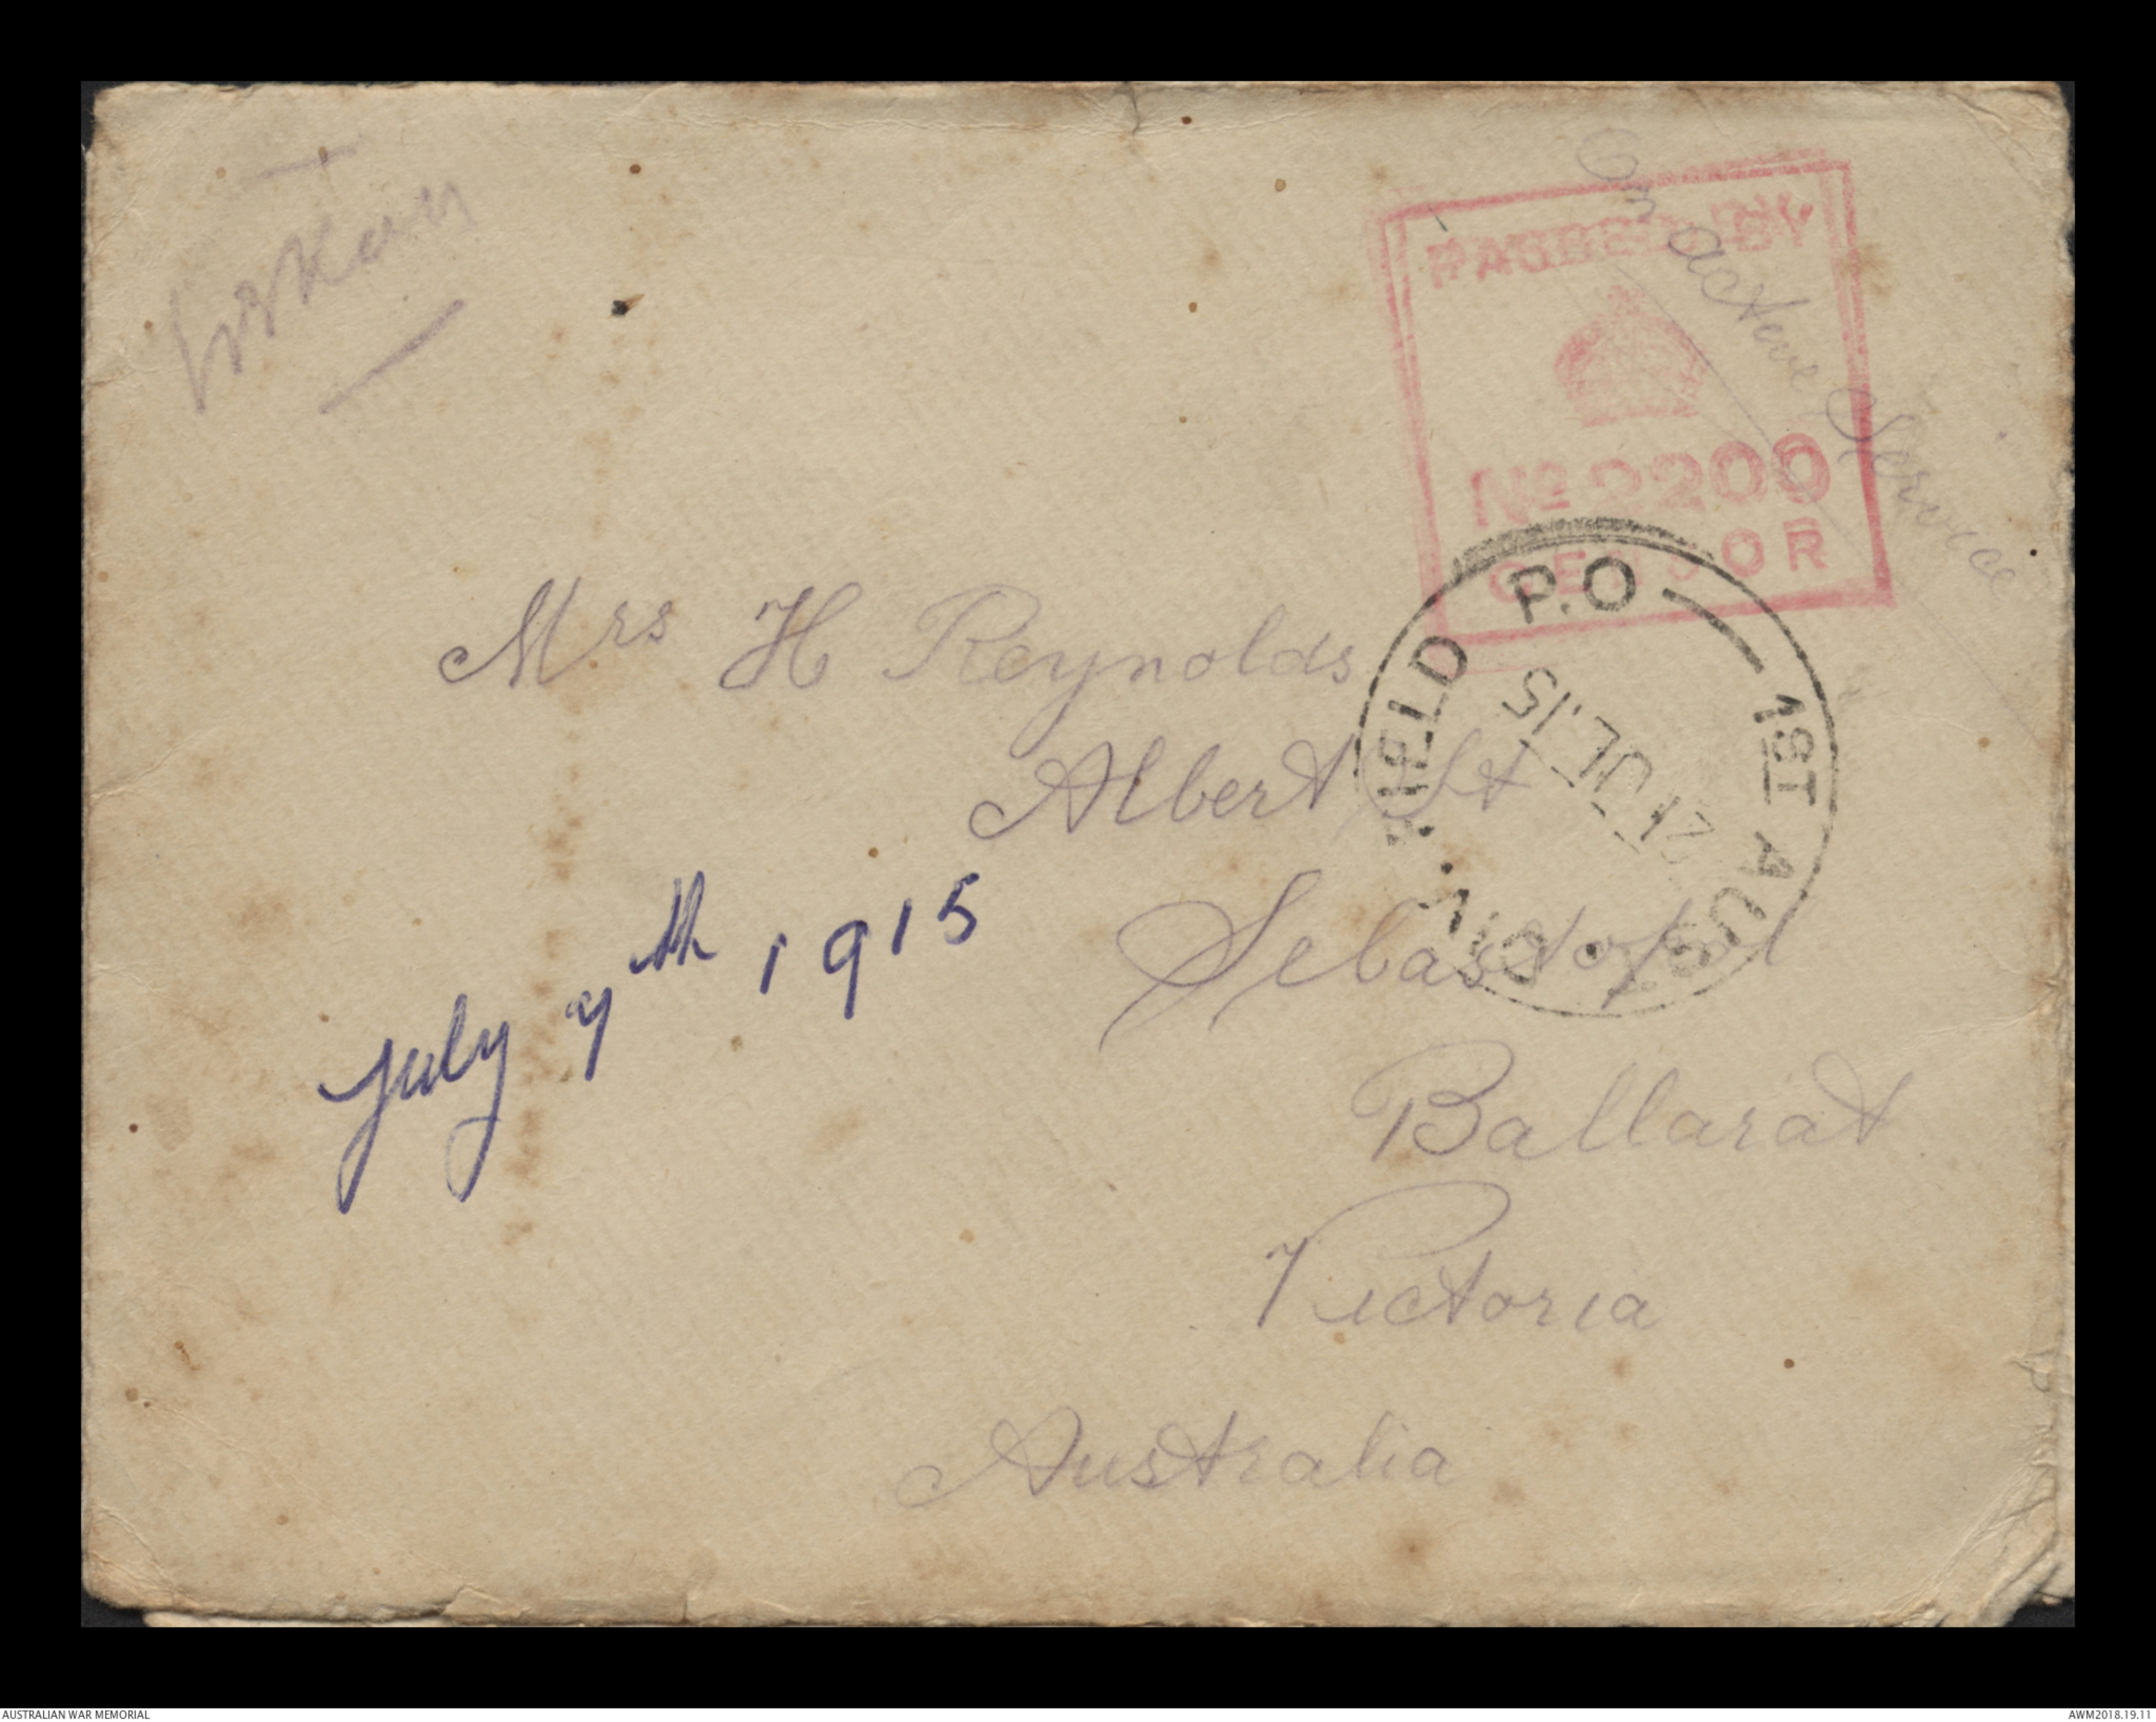 On active Service
PASSED BY
Nº 2200
CENSOR
FIELD P.O
1ST AUST. DIV.
21 JUL. 15
Mrs H Reynolds
Albert St
Sebastopol
Ballarat
Victoria
Australia
July 7th 1915
AUSTRALIAN WAR MEMORIAL
AWM2018.19.11